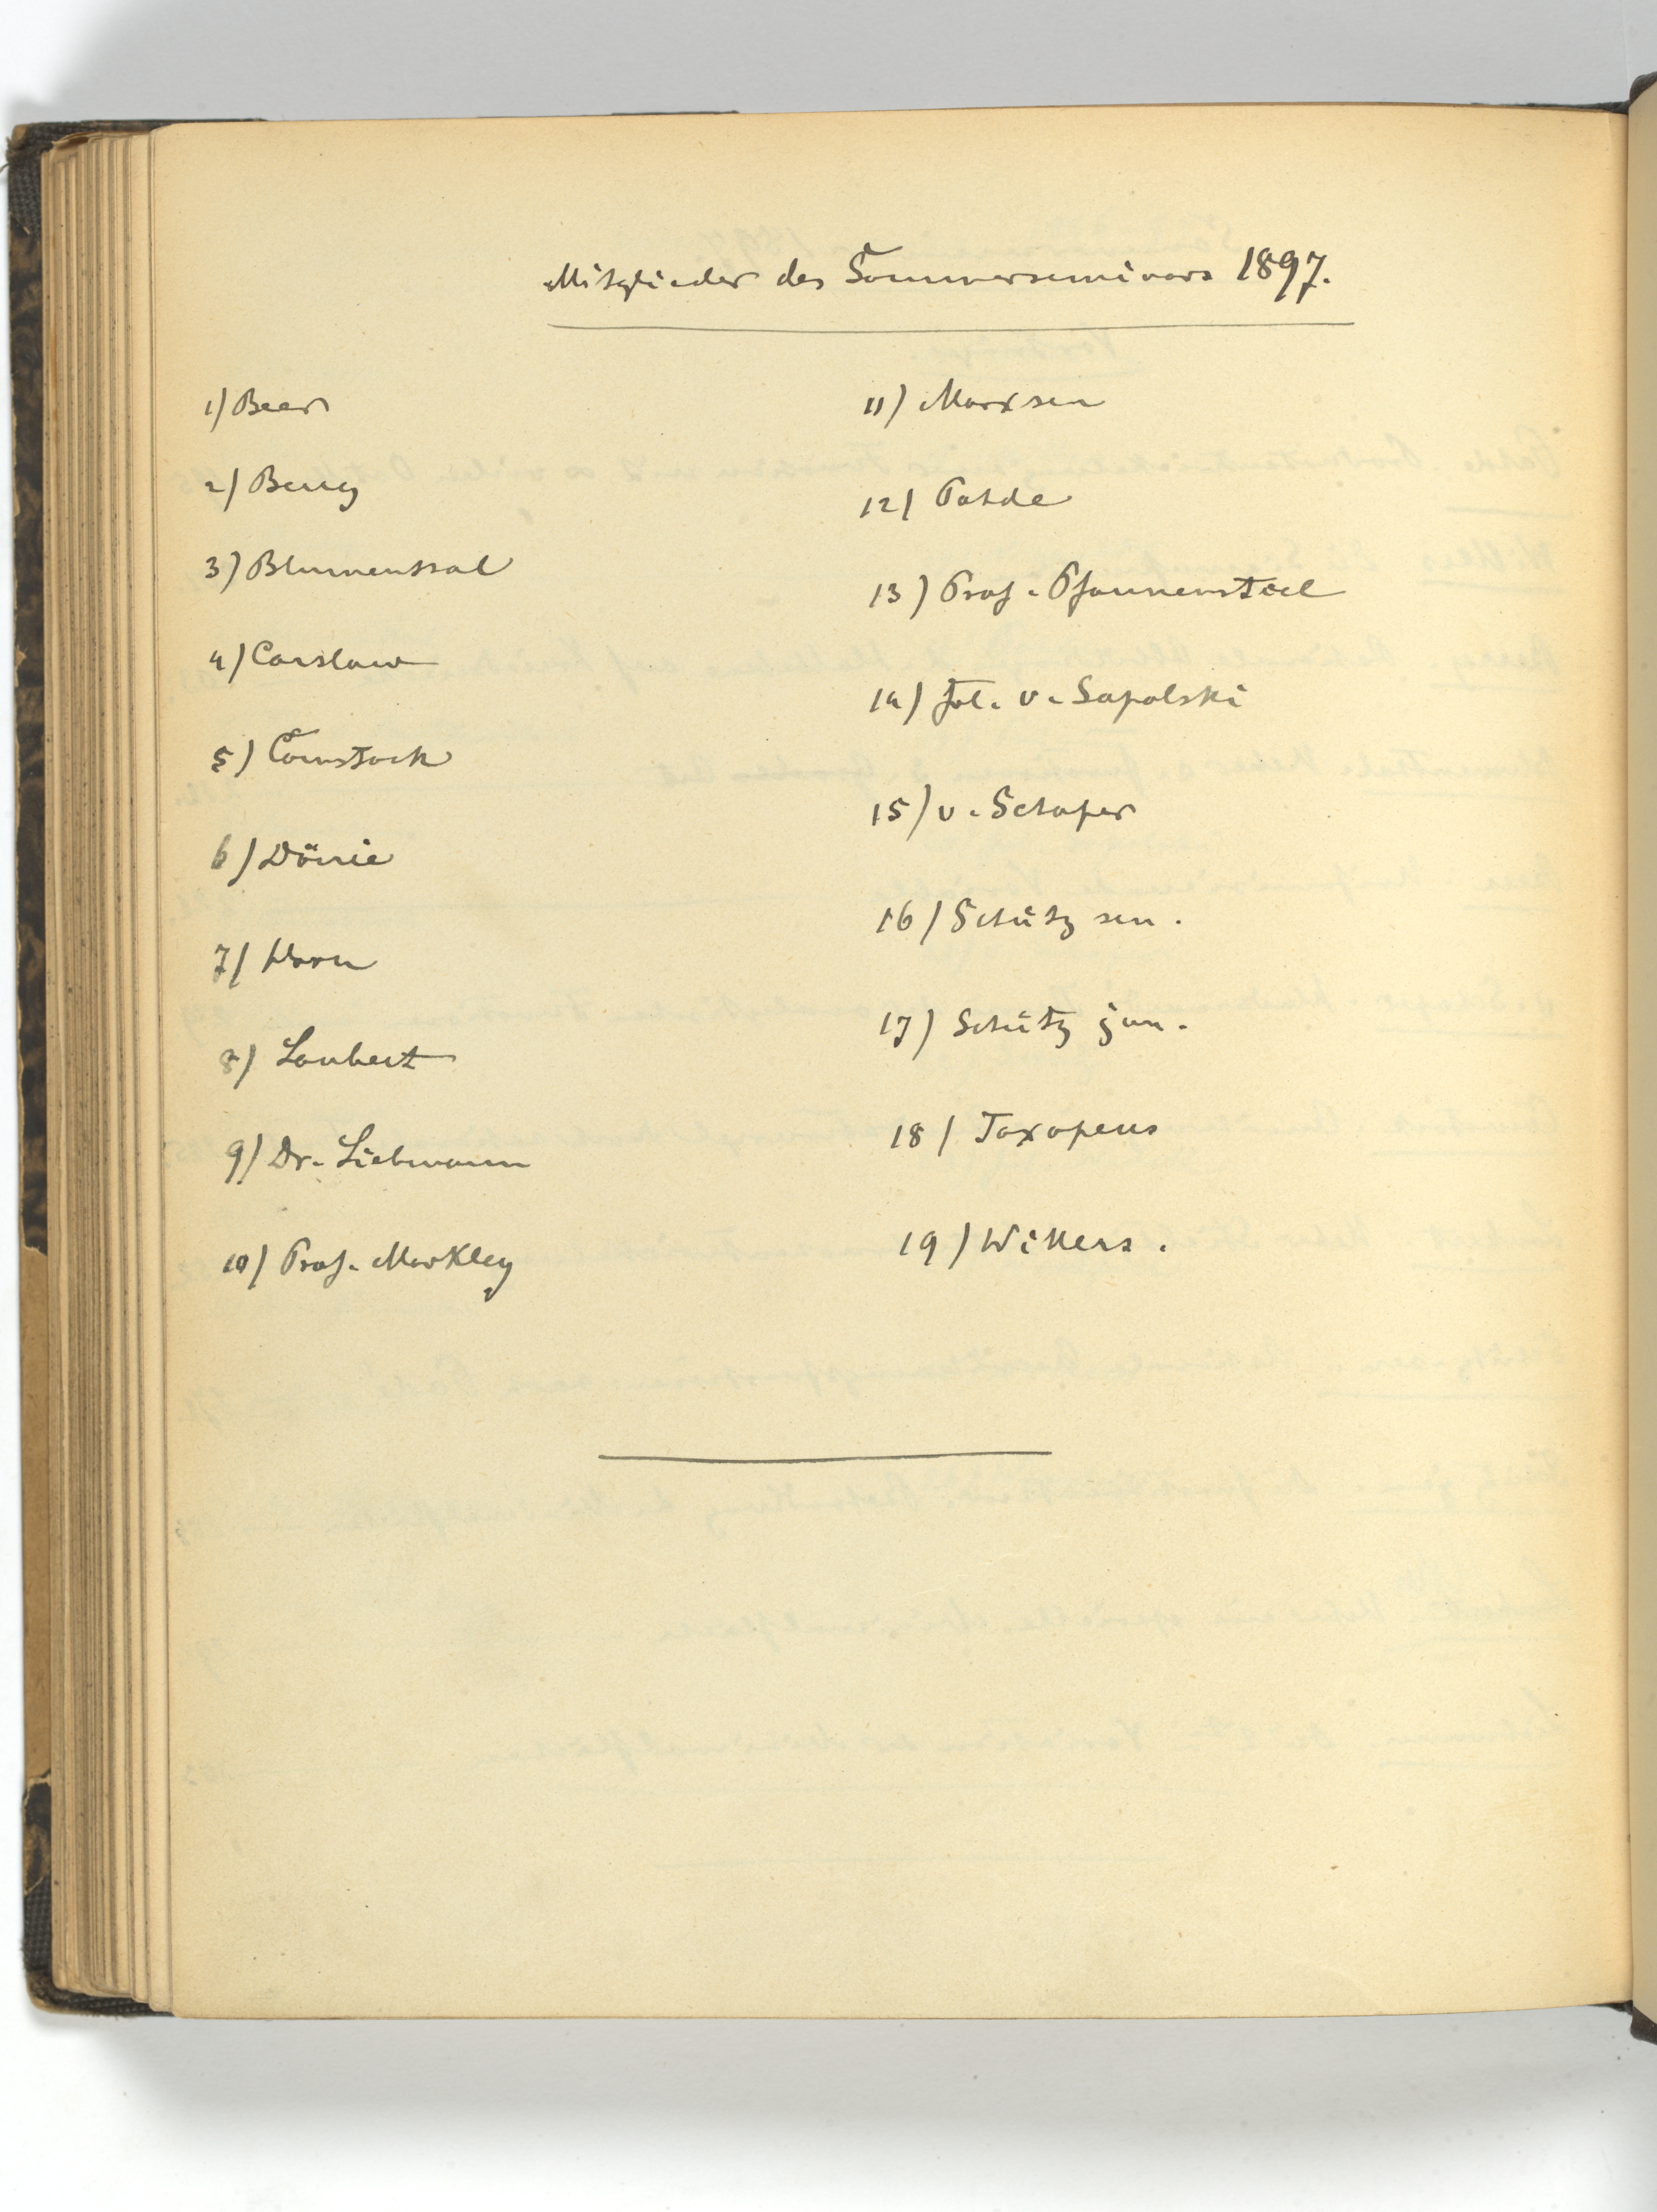 Mitglieder des Sommerseminars 1897.
1) Beer
2) Berry
3) Blumenthal
4) Carslaw
5) Comstock
6) Dörrie
7) Horn
8) Laubert
9) Dr. Liebmann
10) Prof. Markley
11) Marxsen
12) Pahde
13) Prof. Pfannenstiel
14) Frl. v. Sapolski
15) v. Schaper
16) Schütz sen.
17) Schütz jun.
18) Toxopeus
19) Willers.